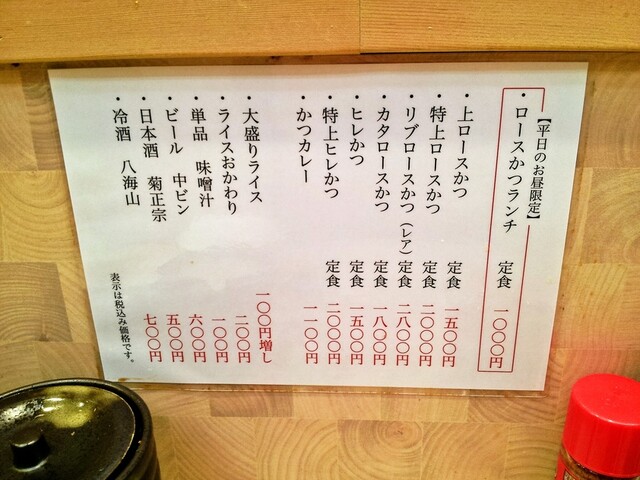 【平日のお昼限定】
・ロースかつランチ 定食 一〇〇〇円
・上ロースかつ 定食 一五〇〇円
・特上ロースかつ 定食 二〇〇〇円
・リブロースかつ(レア) 定食 二八〇〇円
・カタロースかつ 定食 一八〇〇円
・ヒレかつ 定食 一五〇〇円
・特上ヒレかつ 定食 二〇〇〇円
・かつカレー 一一〇〇円
・大盛りライス 一〇〇円増し
・ライスおかわり 二〇〇円
・単品 味噌汁 一〇〇円
・ビール 中ビン 六〇〇円
・日本酒 菊正宗 五〇〇円
・冷酒 八海山 七〇〇円
表示は税込み価格です。